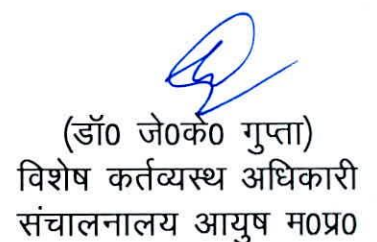 (डॉ0 जे0के0 गुप्ता)
विशेष कर्तव्यस्थ अधिकारी
संचालनालय आयुष म0प्र0